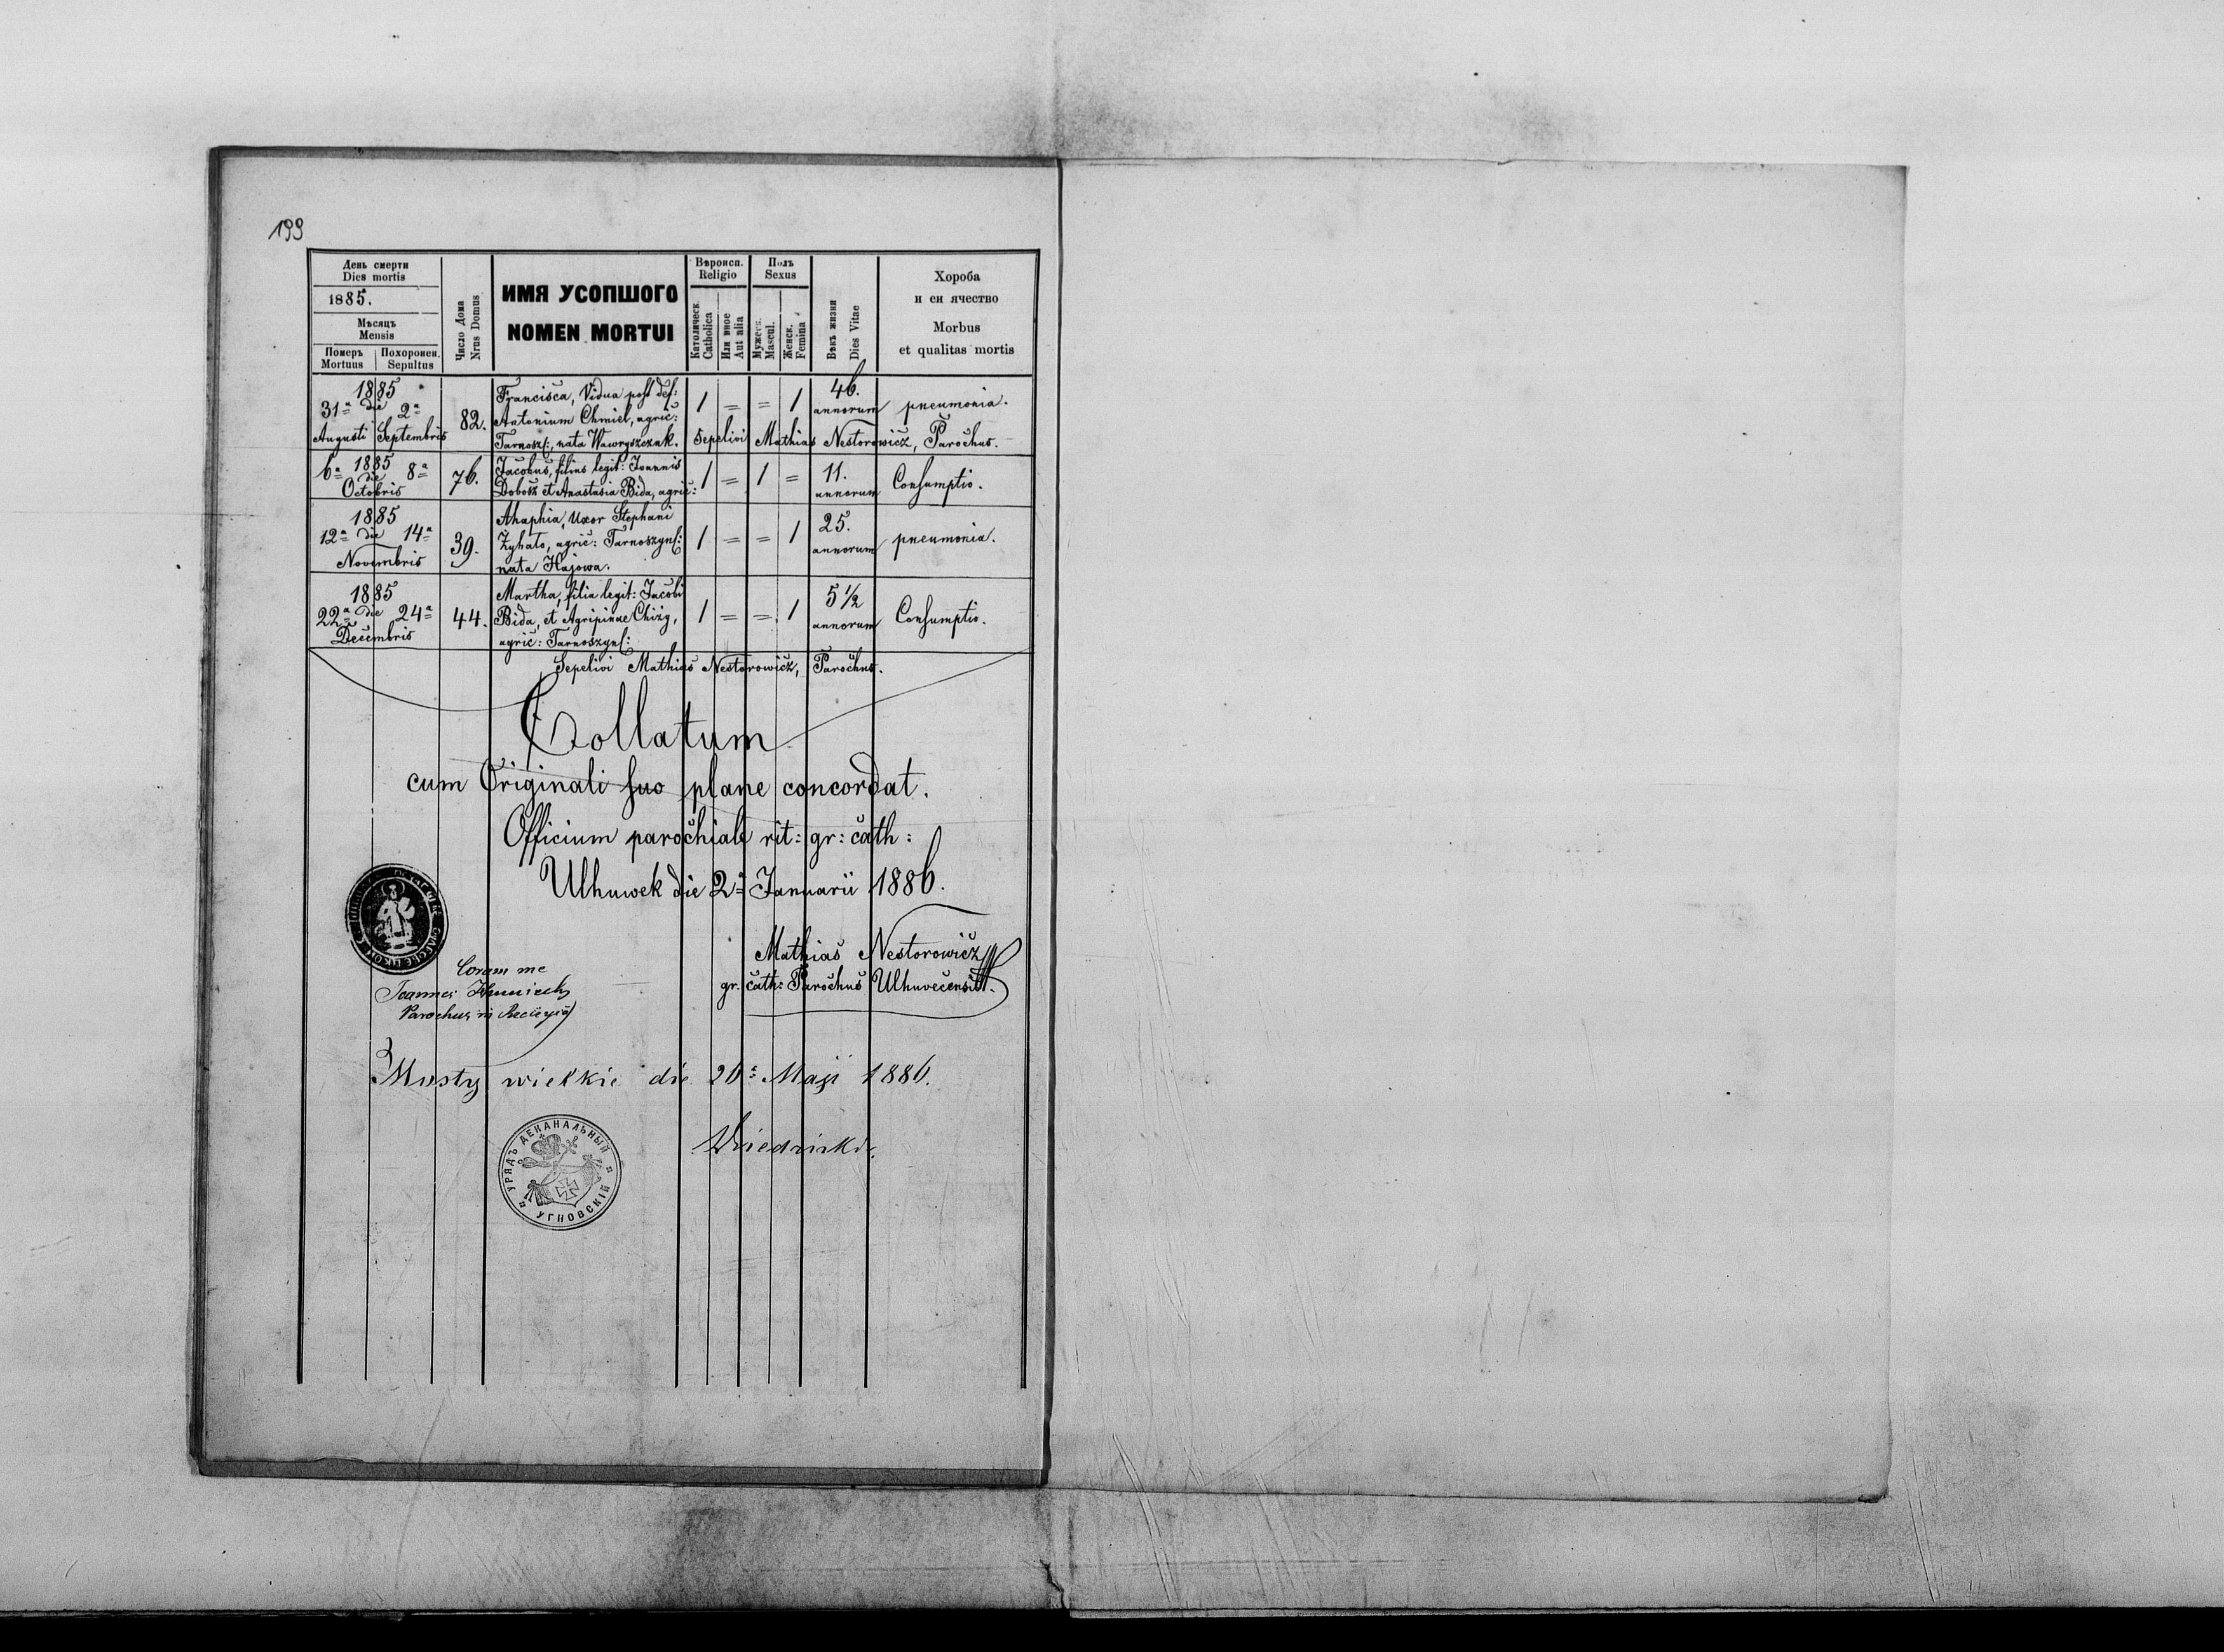 199
День смерти
Dies mortis
1885.
Мѣсяцъ
Mensis
Померъ Похоронен.
Mortuus Sepultus
Число Дома
Nrus Domus
ИМЯ УСОПШОГО
NOMEN MORTUI
Вѣроисп.
Religio
Католическ.
Catholica
Или иное
Aut alia
Полъ
Sexus
Мужеск.
Mascul.
Женск.
Femina
Вѣкъ жизни
Dies Vitae
Хороба
и еи ячество
Morbus
et qualitas mortis
1885
31ª die 2ª
Augusti Septembris
82.
Francisca, Vidua post def:
Antonium Chmiel, agric:
Tarnosz:, nata Wawryszczuk.
1 = = 1
46.
annorum
pneumonia.
Sepelivi Mathias Nestorowicz, Parochus.
1885
6ª die 8ª
Octobris
76.
Jacobus, filius legit: Joannis
Dobosz et Anastasia Bida, agric:
1 = 1 =
11.
annorum
Consumptio.
1885
12ª die 14ª
Novembris
39.
Ahaphia, Uxor Stephani
Żyhało, agric: Tarnoszyns:
nata Hajowa.
1 = = 1
25.
annorum
pneumonia.
1885
22ª die 24ª
Decembris
44.
Martha, filia legit: Jacobi
Bida, et Agripinae Chizy,
agric: Tarnoszyns:
1 = = 1
5 1/2
annorum
Consumptio.
Sepelivi Mathias Nestorowicz, Parochus.
Collatum
cum Originali suo plane concordat.
Officium parochiale rit: gr: cath:
Ulhuwek die 2ª Januarii 1886.
Mathias Nestorowicz
gr. cath: Parochus Ulhuvecensis.
Coram me
Joannes
Parochus in
Mosty wielkie die 26ª Maji 1886.
УРЯДЪ ДЕКАНАЛЬНЫЙ
УГНОВСКІЙ